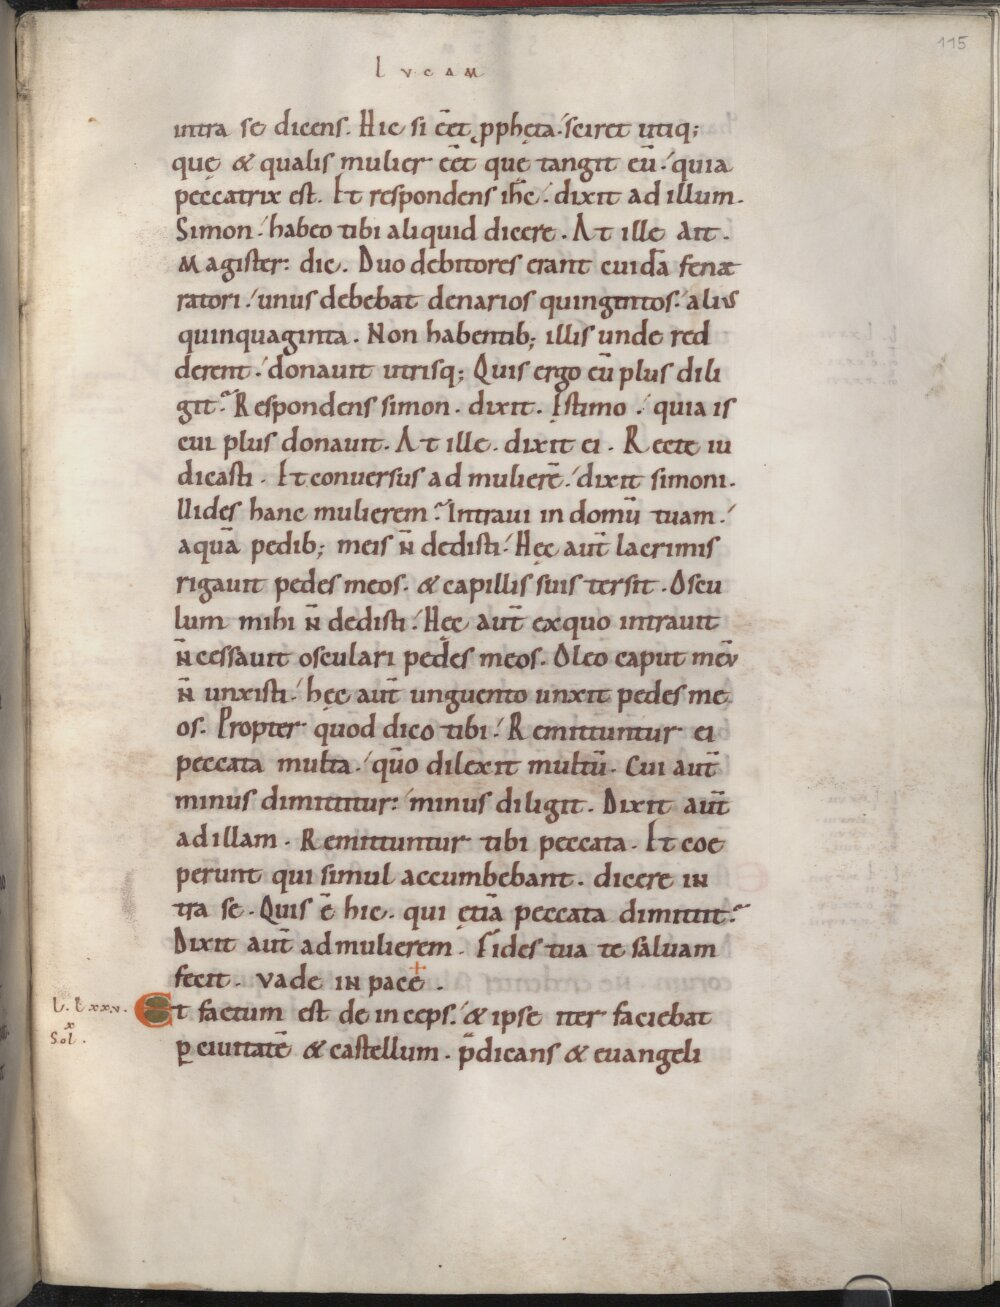 115
LVCAM
intra se dicens. Hic si eēt ꝓpheta. sciret utiq;
quę & qualis mulier eēt quę tangit eū. quia
peccatrix est. Et respondens ihc̄. dixit ad illum.
Simon. habeo tibi aliquid dicere. At ille ait.
Magister: dic. Duo debitores erant cuidā fenæ
ratori. unus debebat denarios quingentos. alius
quinquaginta. Non habentib; illis unde red
derent. donauit utrisq; Quis ergo eū plus dili
git? Respondens simon. dixit. Ęstimo. quia is
cui plus donauit. At ille. dixit ei. Recte iu
dicasti. Et conuersus ad mulierē. dixit simoni.
Uides hanc mulierem? Intraui in domū tuam.
aquā pedib; meis n̄ dedisti. Hęc aut̄ lacrimis
rigauit pedes meos. & capillis suis tersit. Oscu
lum mihi n̄ dedisti. Hęc aut̄ exquo intrauit
n̄ cessauit osculari pedes meos. Oleo caput meū
n̄ unxisti. hęc aut̄ unguento unxit pedes me
os. Propter quod dico tibi. Remittuntur ei
peccata multa. qūo dilexit multū. Cui aut̄
minus dimittitur: minus diligit. Dixit aut̄
ad illam. Remittuntur tibi peccata. Et coe
perunt qui simul accumbebant. dicere in
tra se. Quis ē hic. qui ętiā peccata dimittit?
Dixit aut̄ ad mulierem. Fides tua te saluam
fecit. vade in pace.
L. Lxxv. Et factum est deinceps. & ipse iter faciebat
x
Sol. ꝑ ciuitatē & castellum. p̄dicans & euangeli